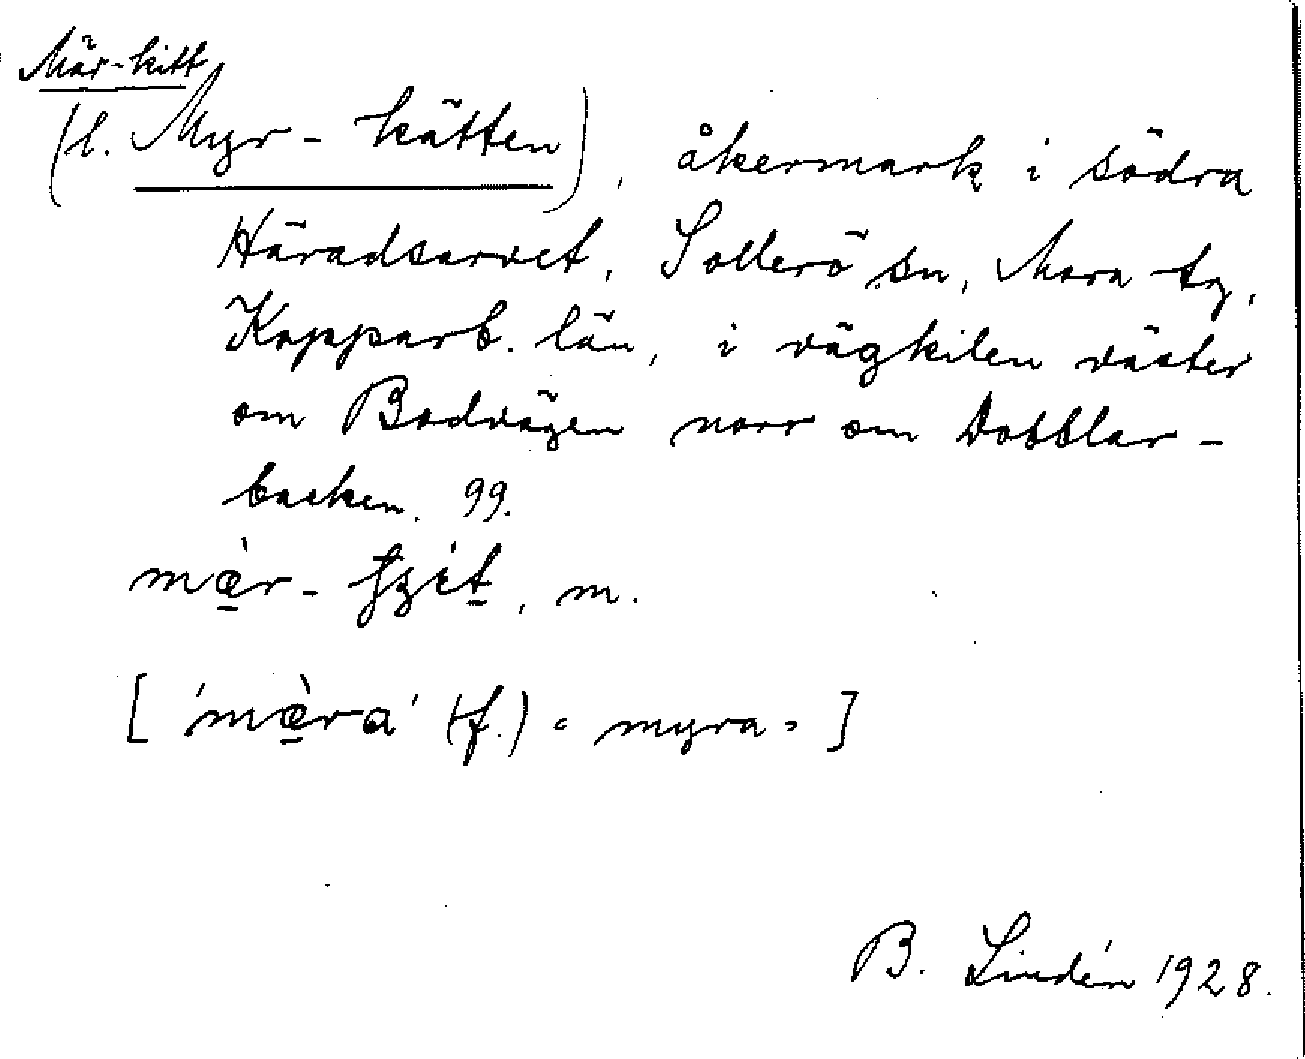 Mär-kitt
(l. Myr-kätten), åkermark i södra
Häradsarvet, Sollerö sn, Mora tg,
Kopparb. län, i vägkilen väster
om Bodvägen norr om Dobblar-
backen. 99.
m.
['mæ̠̀ra' (f.) = myra = ]
B. Lindén 1928.